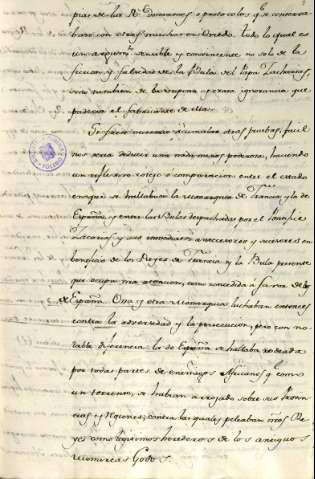 pias de los R.s Diplomas o protocolos q.e conserva
base con otras muchas en Oviedo. Todo lo qual es
un argum.to sensible y convincente no solo de la
ficcion y falsedad de la Bula del Papa Zacharias,
sino tambien de la supina o crasa ignorancia que
padecia el fabricante de ella.
Si fuese necesario acumular otras pruebas, facil
nos seria deducir una nada menos poderosa, haciendo
un reflexivo cotejo o comparacion entre el estado
en que se hallaban la monarquia de Francia y la de
España, y entre las Bulas despachadas por el Pontifice
Zacarias y sus inmediatos antecesores y sucesores en
beneficio de los Reyes de Francia y la Bula presente
que ocupa mi atencion, como concedida a favor de los
de España. Una y otra Monarquia luchaban entonces
contra la adversidad y la persecucion, pero con no-
table diferencia: la de España se hallaba rodeada
por todas partes de enemigos Africanos q.e como
un torrente, se habian arrojado sobre sus Provin-
cias y Regiones, contra las quales peleaban n.ros Re-
yes como legitimos herederos de los antiguos
Monarcas Godos.